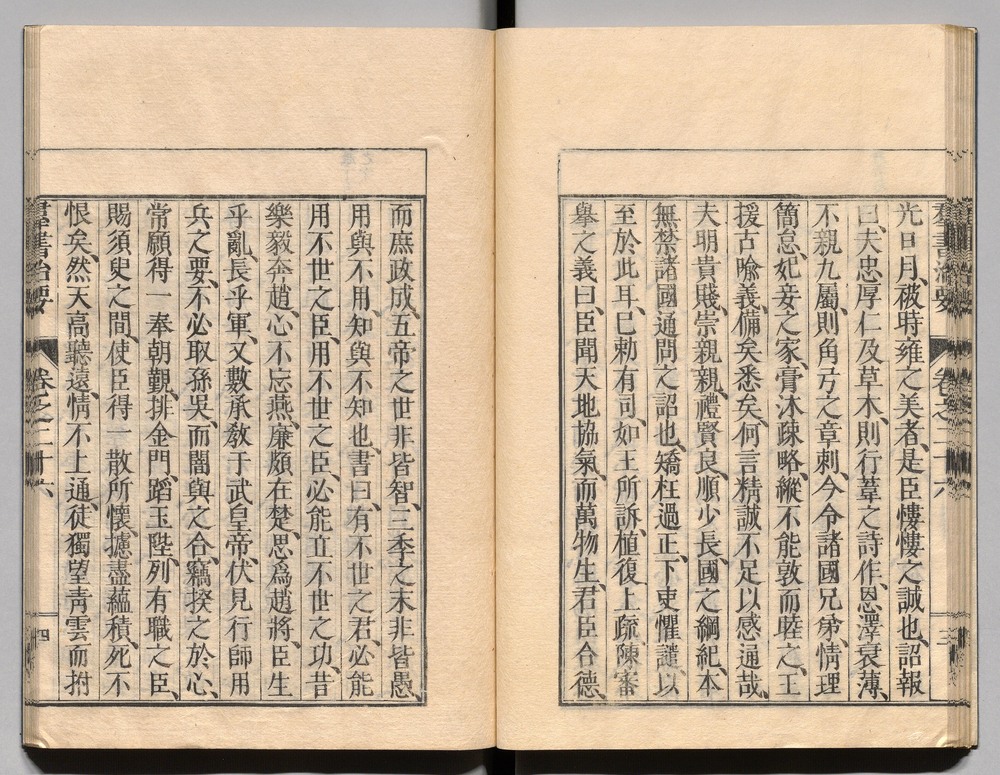 群書治要 卷之二十六 三
光日月、被時雍之美者、是臣慺慺之誠也、詔報
曰、夫忠厚仁及草木、則行葦之詩作、恩澤衰薄、
不親九屬、則角弓之章刺、今令諸國兄弟、情理
簡怠、妃妾之家、膏沐疎略、縱不能敦而睦之、王
援古喻義、備矣悉矣、何言精誠不足以感通哉、
夫明貴賤、崇親親、禮賢良、順少長、國之綱紀、本
無禁諸國通問之詔也、矯枉過正、下吏懼譴、以
至於此耳、已勅有司、如王所訴、植復上疏、陳審
舉之義曰、臣聞天地協氣、而萬物生、君臣合德、
而庶政成、五帝之世非皆智、三季之末非皆愚、
用與不用、知與不知也、書曰、有不世之君、必能
用不世之臣、用不世之臣、必能立不世之功、昔
樂毅奔趙、心不忘燕、廉頗在楚、思爲趙將、臣生
乎亂、長乎軍、又數承敎于武皇帝、伏見行師用
兵之要、不必取孫吳、而闇與之合、竊揆之於心、
常願得一奉朝覲、排金門、蹈玉陛、列有職之臣、
賜須臾之間、使臣得一散所懷、攄盡蘊積、死不
恨矣、然天高聽遠、情不上通、徒獨望青雲而拊
群書治要 卷之二十六 四